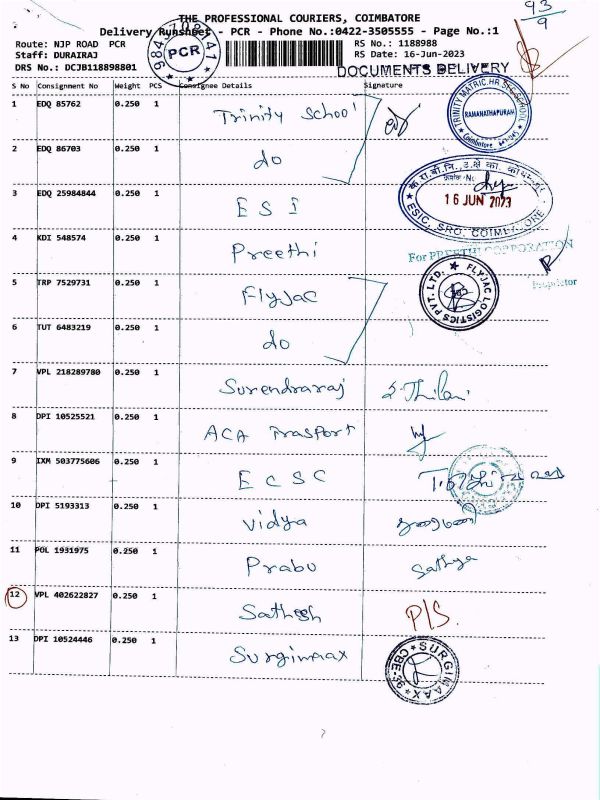 THE PROFESSIONAL COURIERS, COIMBATORE
93/9
Delivery Runsheet - PCR - Phone No.:0422-3505555 - Page No.:1
Route: NJP ROAD PCR
RS No.: 1188988
Staff: DURAIRAJ
RS Date: 16-Jun-2023
DRS No.: DCJB118898801
PCR
DOCUMENTS DELIVERY
S No Consignment No Weight PCS Consignee Details Signature
1 EDQ 85762 0.250 1 Trinity School
TRINITY MATRIC.HR SEC.SCHOOL
RAMANATHAPURAM
2 EDQ 86703 0.250 1 do
3 EDQ 25984844 0.250 1 ESI
16 JUN 2023
ESIC, SRO, COIMBATORE
4 KDI 548574 0.250 1 Preethi
For PREETHI CORPORATION
Proprietor
5 TRP 7529731 0.250 1 Flyjac
FLYJAC LOGISTICS PVT. LTD.
6 TUT 6483219 0.250 1 do
7 VPL 218289780 0.250 1 Surendraraj S. Thilani
8 DPI 10525521 0.250 1 ACA Trasport
9 IXM 503775606 0.250 1 ECSC
10 DPI 5193313 0.250 1 Vidya
11 POL 1931975 0.250 1 Prabu Sathya
12 VPL 402622827 0.250 1 Sathish P/S.
13 DPI 10524446 0.250 1 Surgimaax
SURGIMAAX
CBE-36